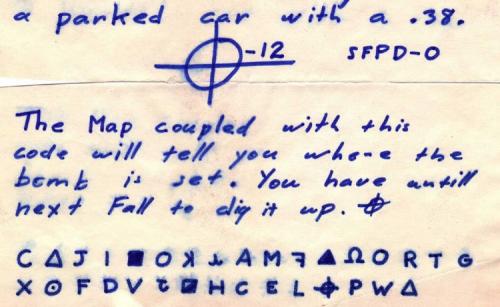 a parked car with a .38.
-12 SFPD-0
The Map coupled with this
code will tell you where the
bomb is set. You have untill
next Fall to dig it up. ⌖
C Δ J I ■ O ꓘ ⅄ A M ꟻ ▲ Ω O R T G
X ⊙ F D V ⊟ H C E L ⌖ P W Δ